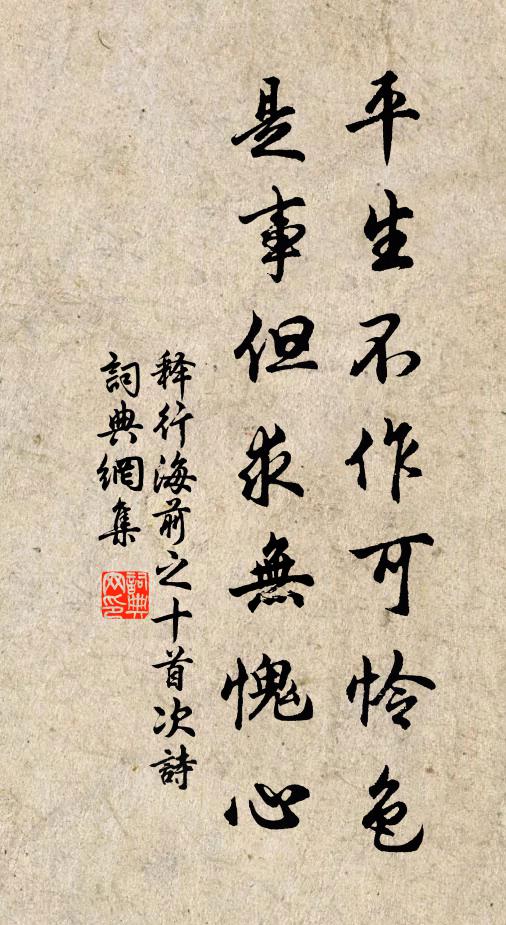 平生不作可怜色
是事但求無愧心
释行海前之十首次詩
詞典網集
詞典
网印